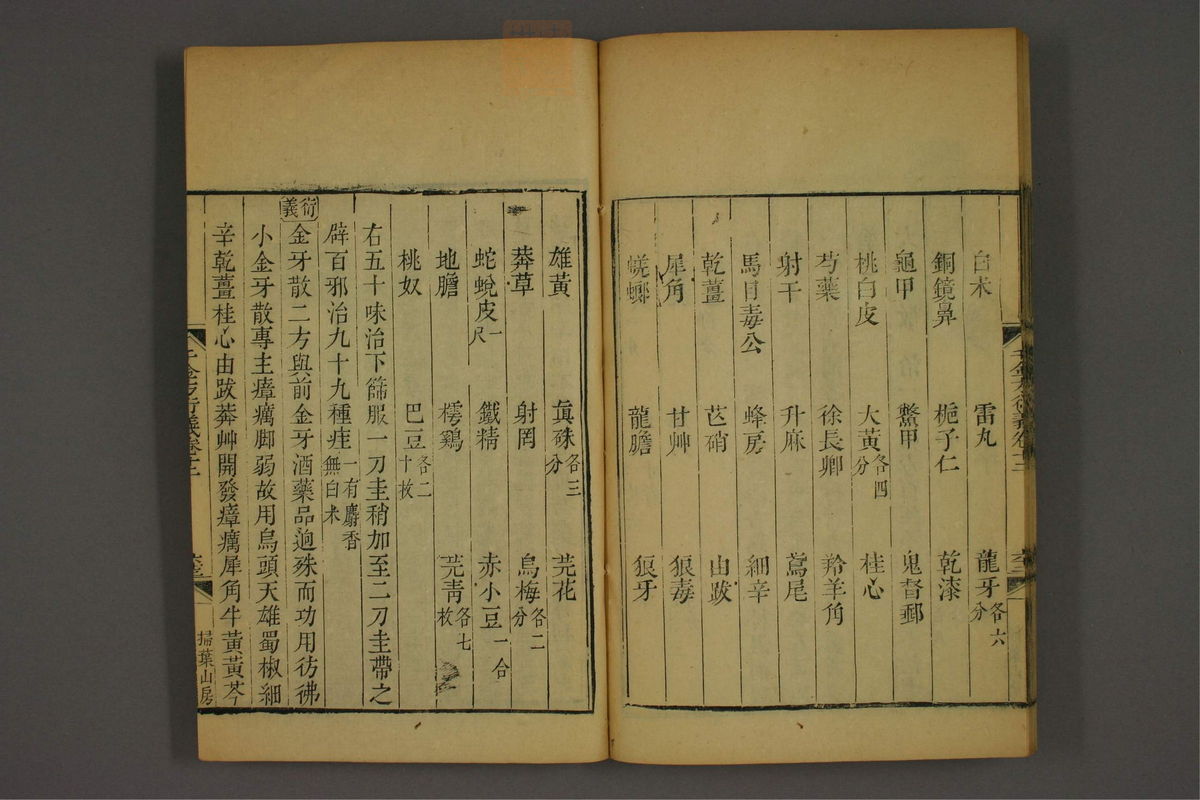 白朮 雷丸 龍牙各六分
銅鏡鼻 梔子仁 乾漆
龜甲 鱉甲 鬼督郵
桃白皮 大黃各四分 桂心
芍藥 徐長卿 羚羊角
射干 升麻 鳶尾
馬目毒公 蜂房 細辛
乾薑 芒硝 由跋
犀角 甘艸 狼毒
蜣螂 龍膽 狼牙
雄黃 真硃各三分 芫花
莽草 射罔 烏梅各二分
蛇蛻皮一尺 鐵精 赤小豆一合
地膽 樗鷄 芫青各七枚
桃奴 巴豆各二十枚
右五十味治下篩服一刀圭稍加至二刀圭帶之
辟百邪治九十九種疰一有麝香無白朮
衍義
金牙散二方與前金牙酒藥品逈殊而功用彷彿
小金牙散專主瘴癘脚弱故用烏頭天雄蜀椒細
辛乾薑桂心由跋莽艸開發瘴癘犀角牛黃黃芩
千金方衍義卷十二
掃葉山房